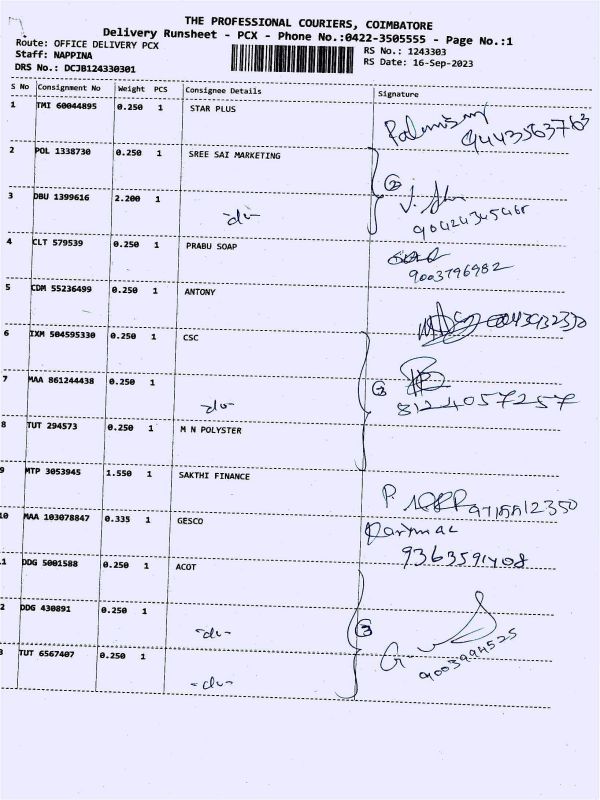 THE PROFESSIONAL COURIERS, COIMBATORE
Delivery Runsheet - PCX - Phone No.:0422-3505555 - Page No.:1
Route: OFFICE DELIVERY PCX
RS No.: 1243303
Staff: NAPPINA
RS Date: 16-Sep-2023
DRS No.: DCJB124330301
S No Consignment No Weight PCS Consignee Details Signature
1 TMI 60044895 0.250 1 STAR PLUS
9443563763
2 POL 1338730 0.250 1 SREE SAI MARKETING
2
3 DBU 1399616 2.200 1 -do-
4 CLT 579539 0.250 1 PRABU SOAP
9003796982
5 CDM 55236499 0.250 1 ANTONY
6 IXM 504595330 0.250 1 CSC
7 MAA 861244438 0.250 1 -do-
3
8124057257
8 TUT 294573 0.250 1 M N POLYSTER
9 MTP 3053945 1.550 1 SAKTHI FINANCE
10 MAA 103078847 0.335 1 GESCO
9363591408
1 DDG 5001588 0.250 1 ACOT
2 DDG 430891 0.250 1 -do-
3
9003994525
3 TUT 6567407 0.250 1 -do-